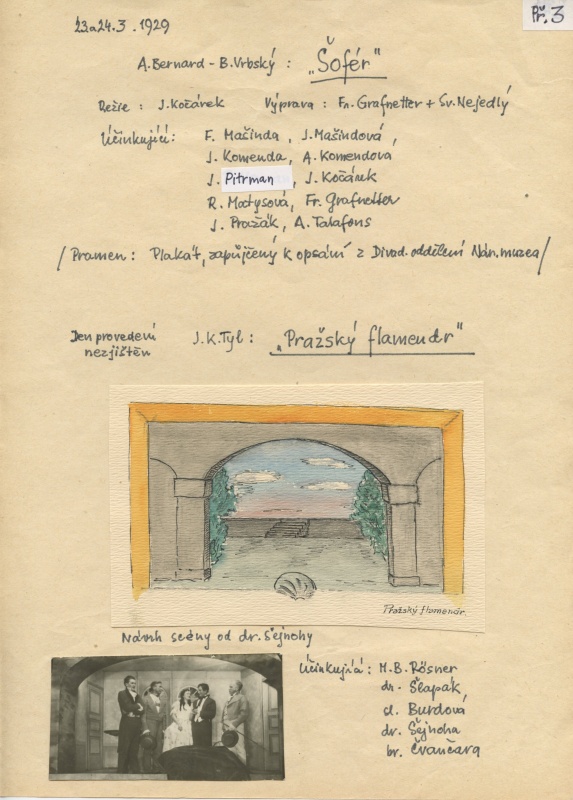 Př. 3
23. a 24. 3. 1929
A. Bernard - B. Vrbský : „Šofér"
Režie : J. Kočárek Výprava : Fr. Grafnetter + Sv. Nejedlý
Účinkující: F. Mašinda, J. Mašindová,
J. Komenda, A. Komendova
J. Pitrman, J. Kočárek
R. Matysová, Fr. Grafnetter
J. Pražák, A. Talafons
/Pramen: Plakát, zapůjčený k opsání z Divad. oddělení Nár. muzea/
Den provedení nezjištěn J. K. Tyl : „Pražský flamendr"
Pražský flamendr.
Návrh scény od dr. Šejnohy
Účinkující: M. B. Rösner
dr. Šlapák
cl. Burdová
dr. Šejnoha
br. Čvančara